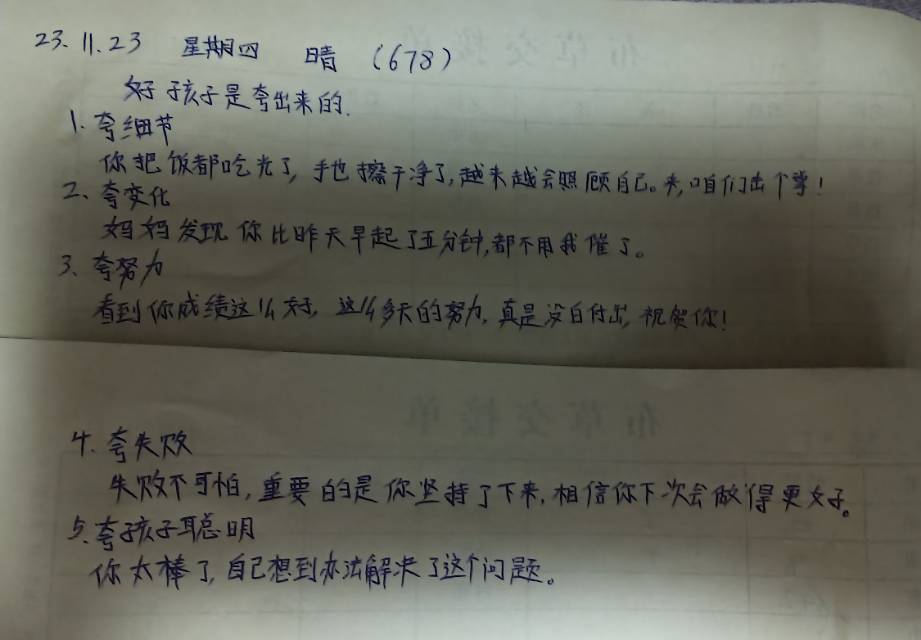 23.11.23 星期四 晴 (678)
好孩子是夸出来的.
1. 夸细节
你把饭都吃光了, 手也擦干净了, 越来越会照顾自己。来, 咱们出个掌!
2、夸变化
妈妈发现你比昨天早起了五分钟, 都不用我催了。
3、夸努力
看到你成绩这么好, 这么多天的努力, 真是没白付出, 祝贺你!
布草交接单
4. 夸失败
失败不可怕, 重要的是你坚持了下来, 相信你下一次会做得更好。
5、夸孩子聪明
你太棒了, 自己想到办法解决了这个问题。